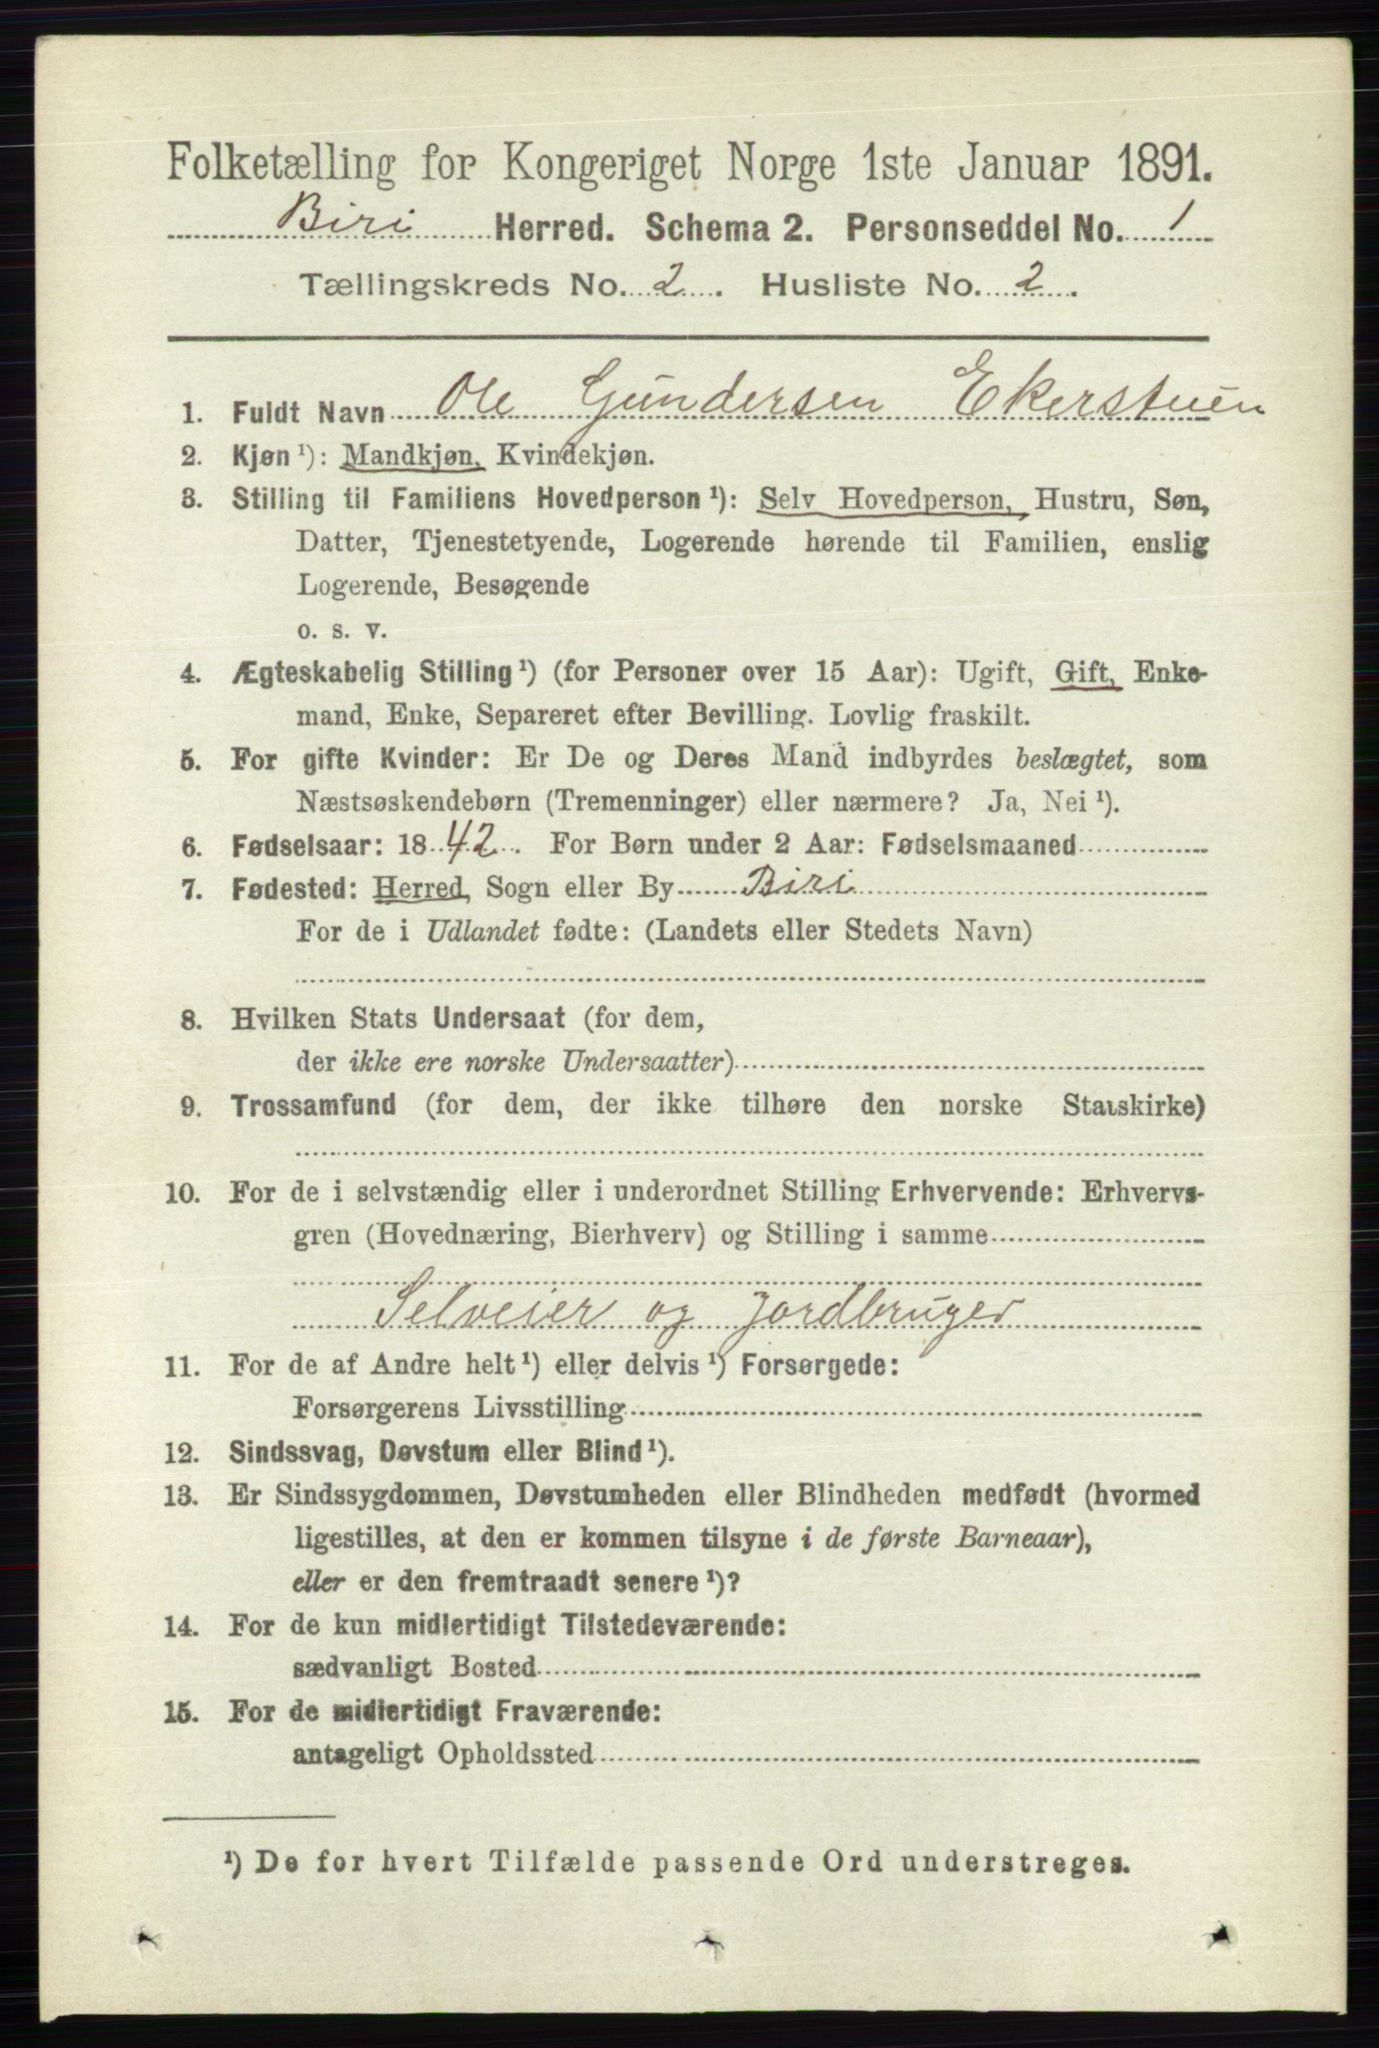 Folketælling for Kongeriget Norge 1ste Januar 1891.
Biri Herred. Schema 2. Personseddel No. 1
Tællingskreds No. 2. Husliste No. 2.
1. Fuldt Navn Ole Gundersen Ekerstuen
2. Kjøn ¹): Mandkjøn, Kvindekjøn.
3. Stilling til Familiens Hovedperson ¹): Selv Hovedperson, Hustru, Søn,
Datter, Tjenestetyende, Logerende hørende til Familien, enslig
Logerende, Besøgende
o. s. v.
4. Ægteskabelig Stilling ¹) (for Personer over 15 Aar): Ugift, Gift, Enke-
mand, Enke, Separeret efter Bevilling. Lovlig fraskilt.
5. For gifte Kvinder: Er De og Deres Mand indbyrdes beslægtet, som
Næstsøskendebørn (Tremenninger) eller nærmere? Ja, Nei ¹).
6. Fødselsaar: 1842. For Børn under 2 Aar: Fødselsmaaned
7. Fødested: Herred, Sogn eller By Biri
For de i Udlandet fødte: (Landets eller Stedets Navn)
8. Hvilken Stats Undersaat (for dem,
der ikke ere norske Undersaatter)
9. Trossamfund (for dem, der ikke tilhøre den norske Statskirke)
10. For de i selvstændig eller i underordnet Stilling Erhvervende: Erhvervs-
gren (Hovednæring, Bierhverv) og Stilling i samme
Selveier og Jordbruger
11. For de af Andre helt ¹) eller delvis ¹) Forsørgede:
Forsørgerens Livsstilling
12. Sindssvag, Døvstum eller Blind ¹).
13. Er Sindssygdommen, Døvstumheden eller Blindheden medfødt (hvormed
ligestilles, at den er kommen tilsyne i de første Barneaar),
eller er den fremtraadt senere ¹)?
14. For de kun midlertidigt Tilstedeværende:
sædvanligt Bosted
15. For de midlertidigt Fraværende:
antageligt Opholdssted
¹) De for hvert Tilfælde passende Ord understreges.